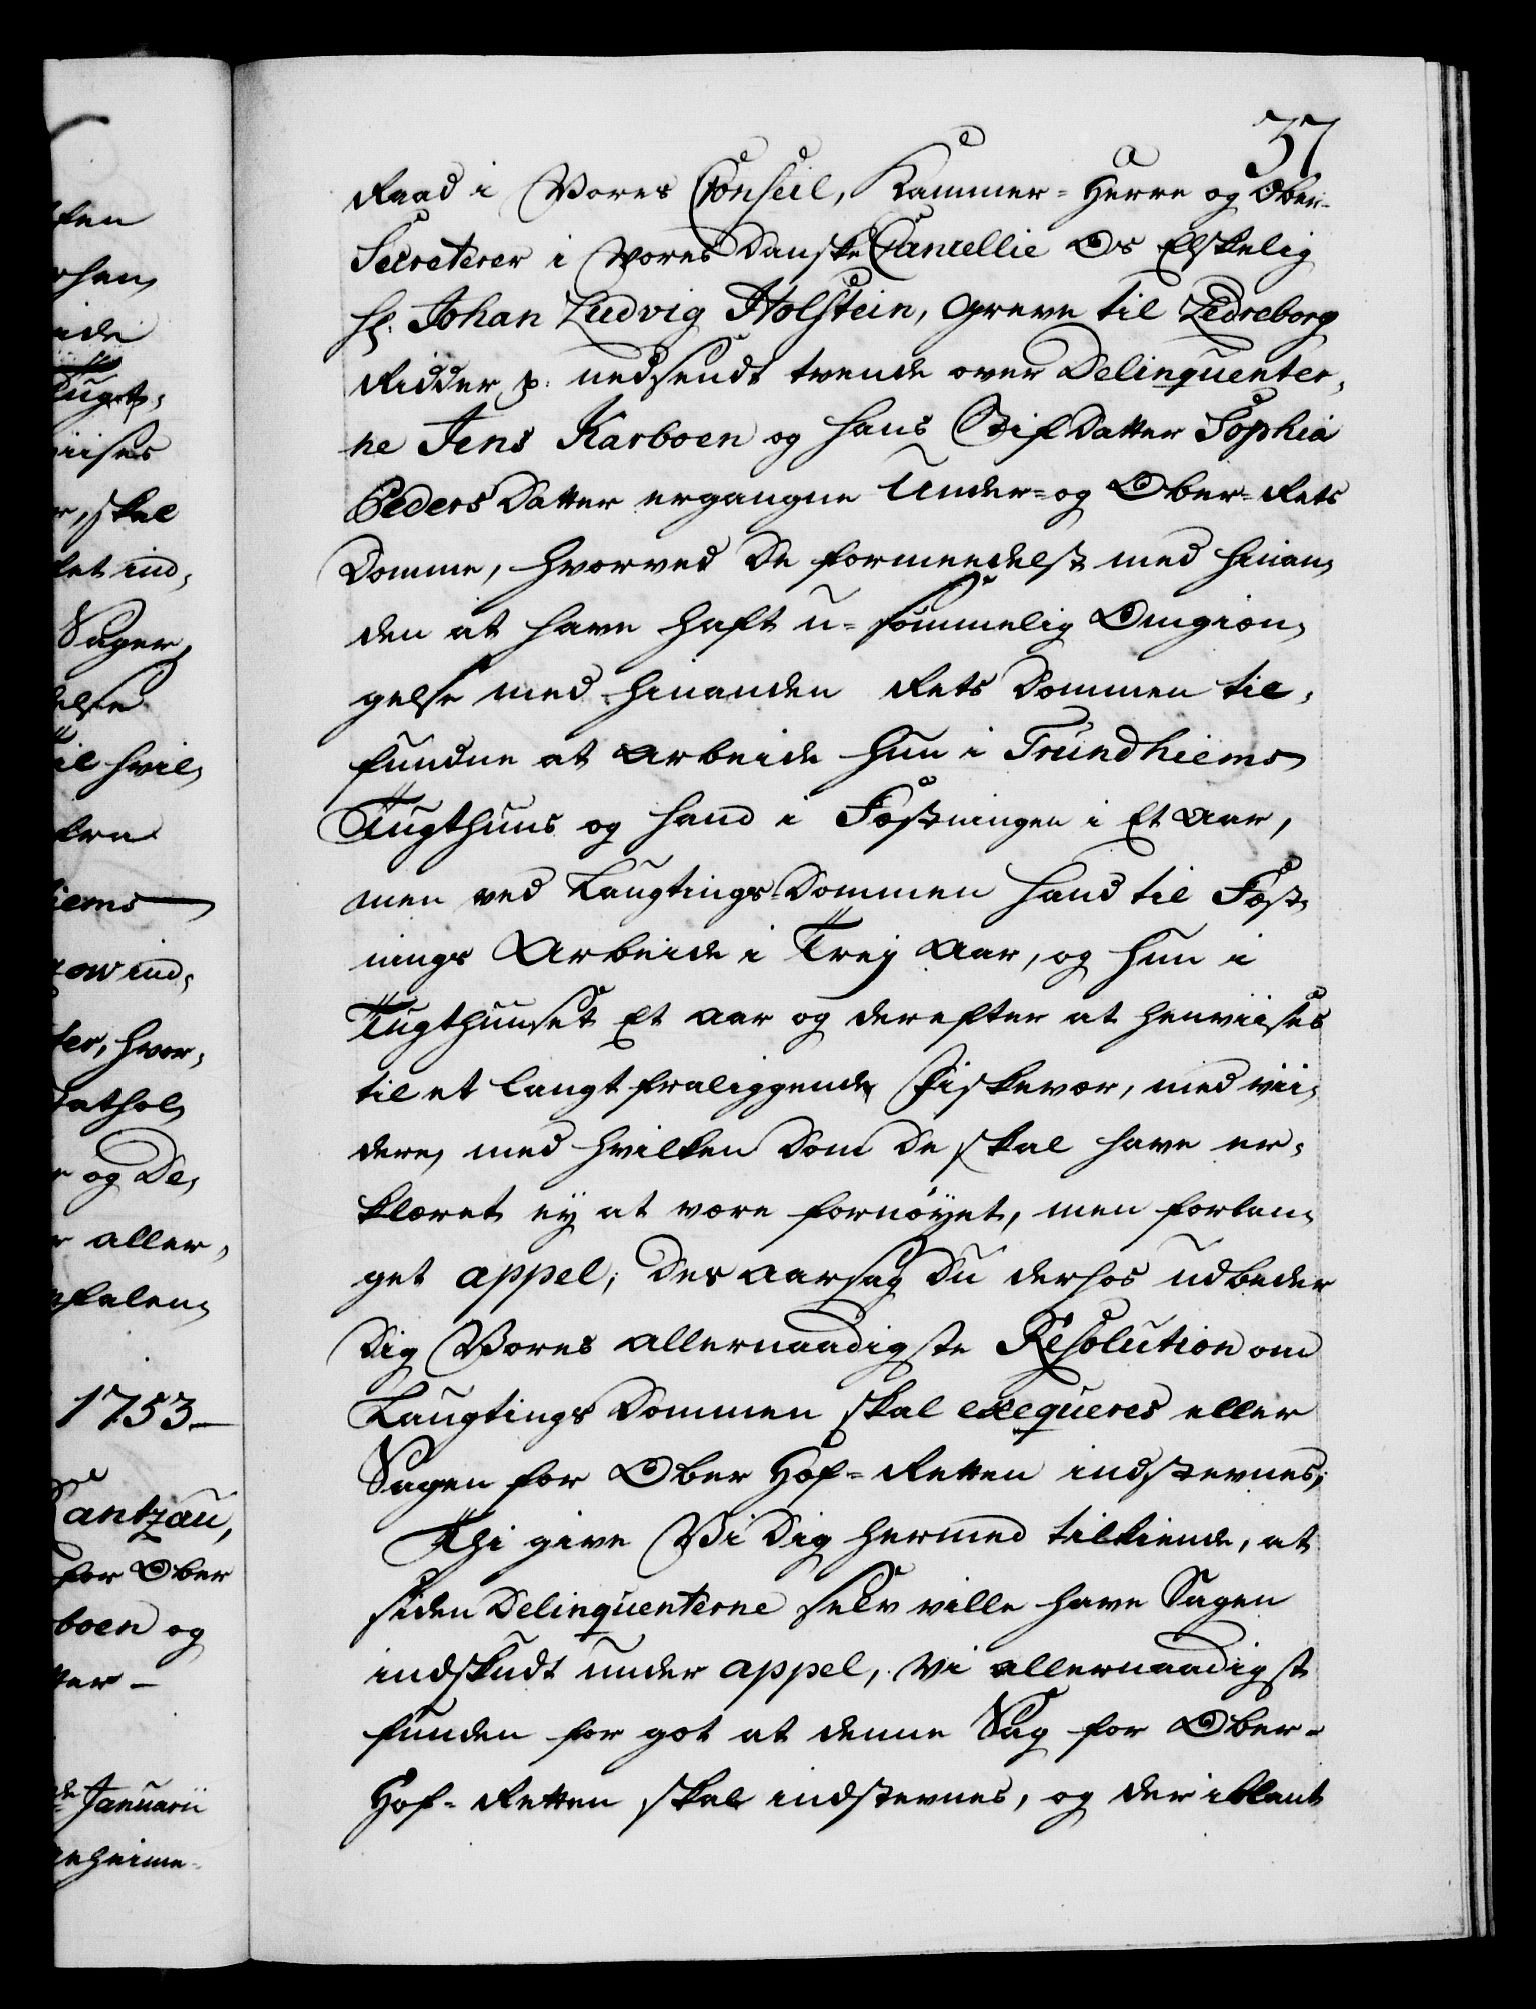 37
Raad i Vores Conseil, Kammer-Herre og Ober-
Secreterer i Vores Danske Cancellie Os Elskelig
Hr. Johan Ludvig Holstein, Greve til Ledreborg
Ridder p. nedsendt tvende over Delinquenter,
ne Jens Karboen og hans Stif Datter Sophia
Peders Datter ergangne Under- og Ober-Rets
Domme, hvorved De formeedelst med hinan,
den at have haft u-sømmelig Omgiæn,
gelse med hinanden Rets Dommen til,
fundne at Arbeide hun i Trundhiems
Tugthuus og hand i Fæstningen i Et Aar,
men ved Laugtings-Dommen hand til Fæst,
nings Arbeide i Trej Aar, og hun i
Tugthuuset Et Aar og derefter at henviises
til et langt fraliggende Fiskevær, med vii,
dere, med hvilken Dom De skal have er,
klæret ey at være fornøyet, men forlan,
get appel; Des Aarsag Du derhos udbeder
Dig Vores allernaadigste Resolution om
Laugtings Dommen skal exequeres eller
Sagen for Ober Hof-Retten indstevnes;
Thi give Vi Dig hermed tilkiende, at
siden Delinquenterne selv ville have Sagen
indskudt under appel, Vi allernaadigst
funden for got at denne Sag for Ober-
Hof-Retten skal indstevnes, og der iblant
skal
let ind,
Sager,
else
til hvil,
fra
iems
ind,
ter, hvor,
og De,
aller,
1753
antzau,
for Ober
boen og
ter
de Januarii